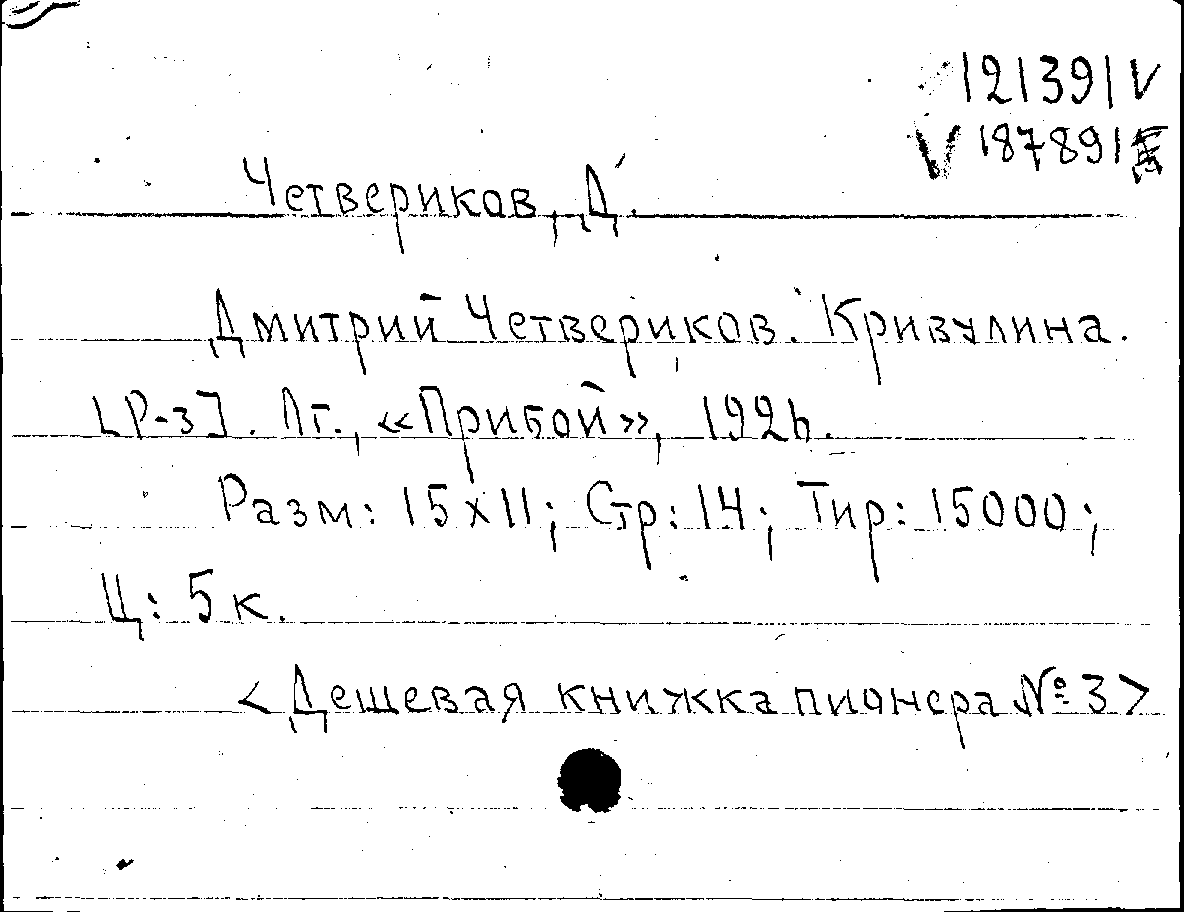 121391 V
V 187891
Четвериков, Д.
Дмитрий Четвериков. Кривулина.
[Р-з]. Лг., «Прибой», 1926.
Разм: 15х11; Стр: 14; Тир: 15000;
Ц: 5к.
<Дешевая книжка пионера № 3>